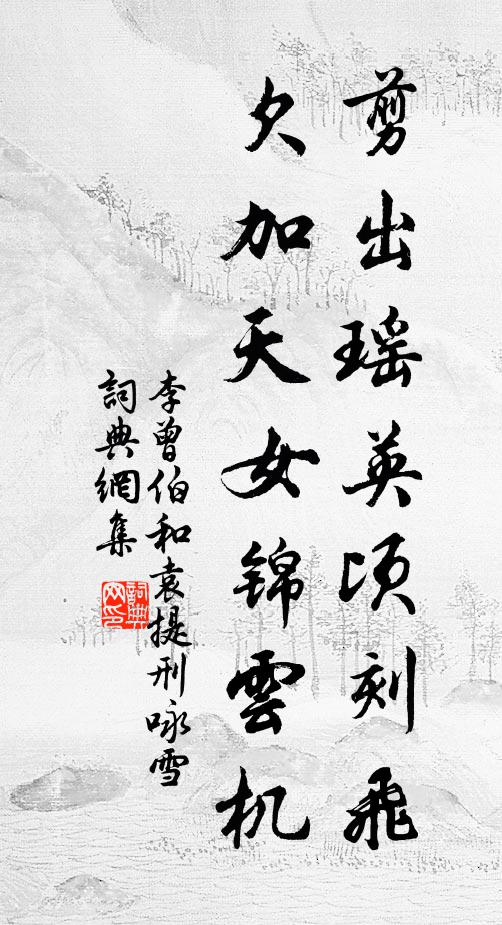 剪出瑶英顷刻飛
欠加天女锦雲机
李曾伯和袁提刑咏雪
詞典網集
詞典